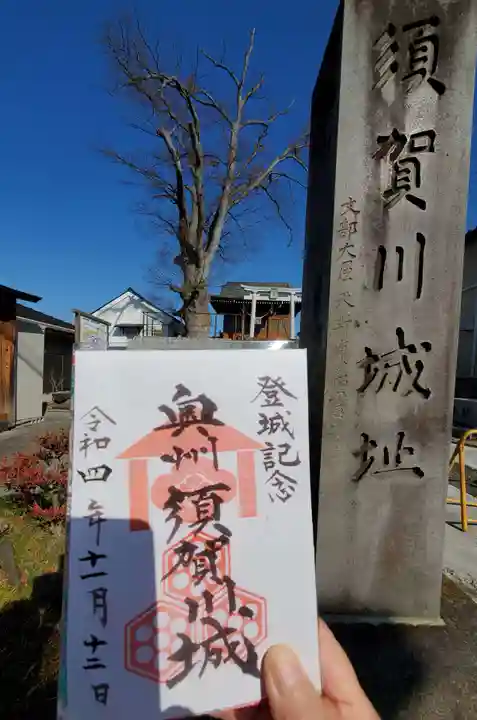 須賀川城址
文部大臣
登城記念
奥州須賀川城
令和四年十一月十二日